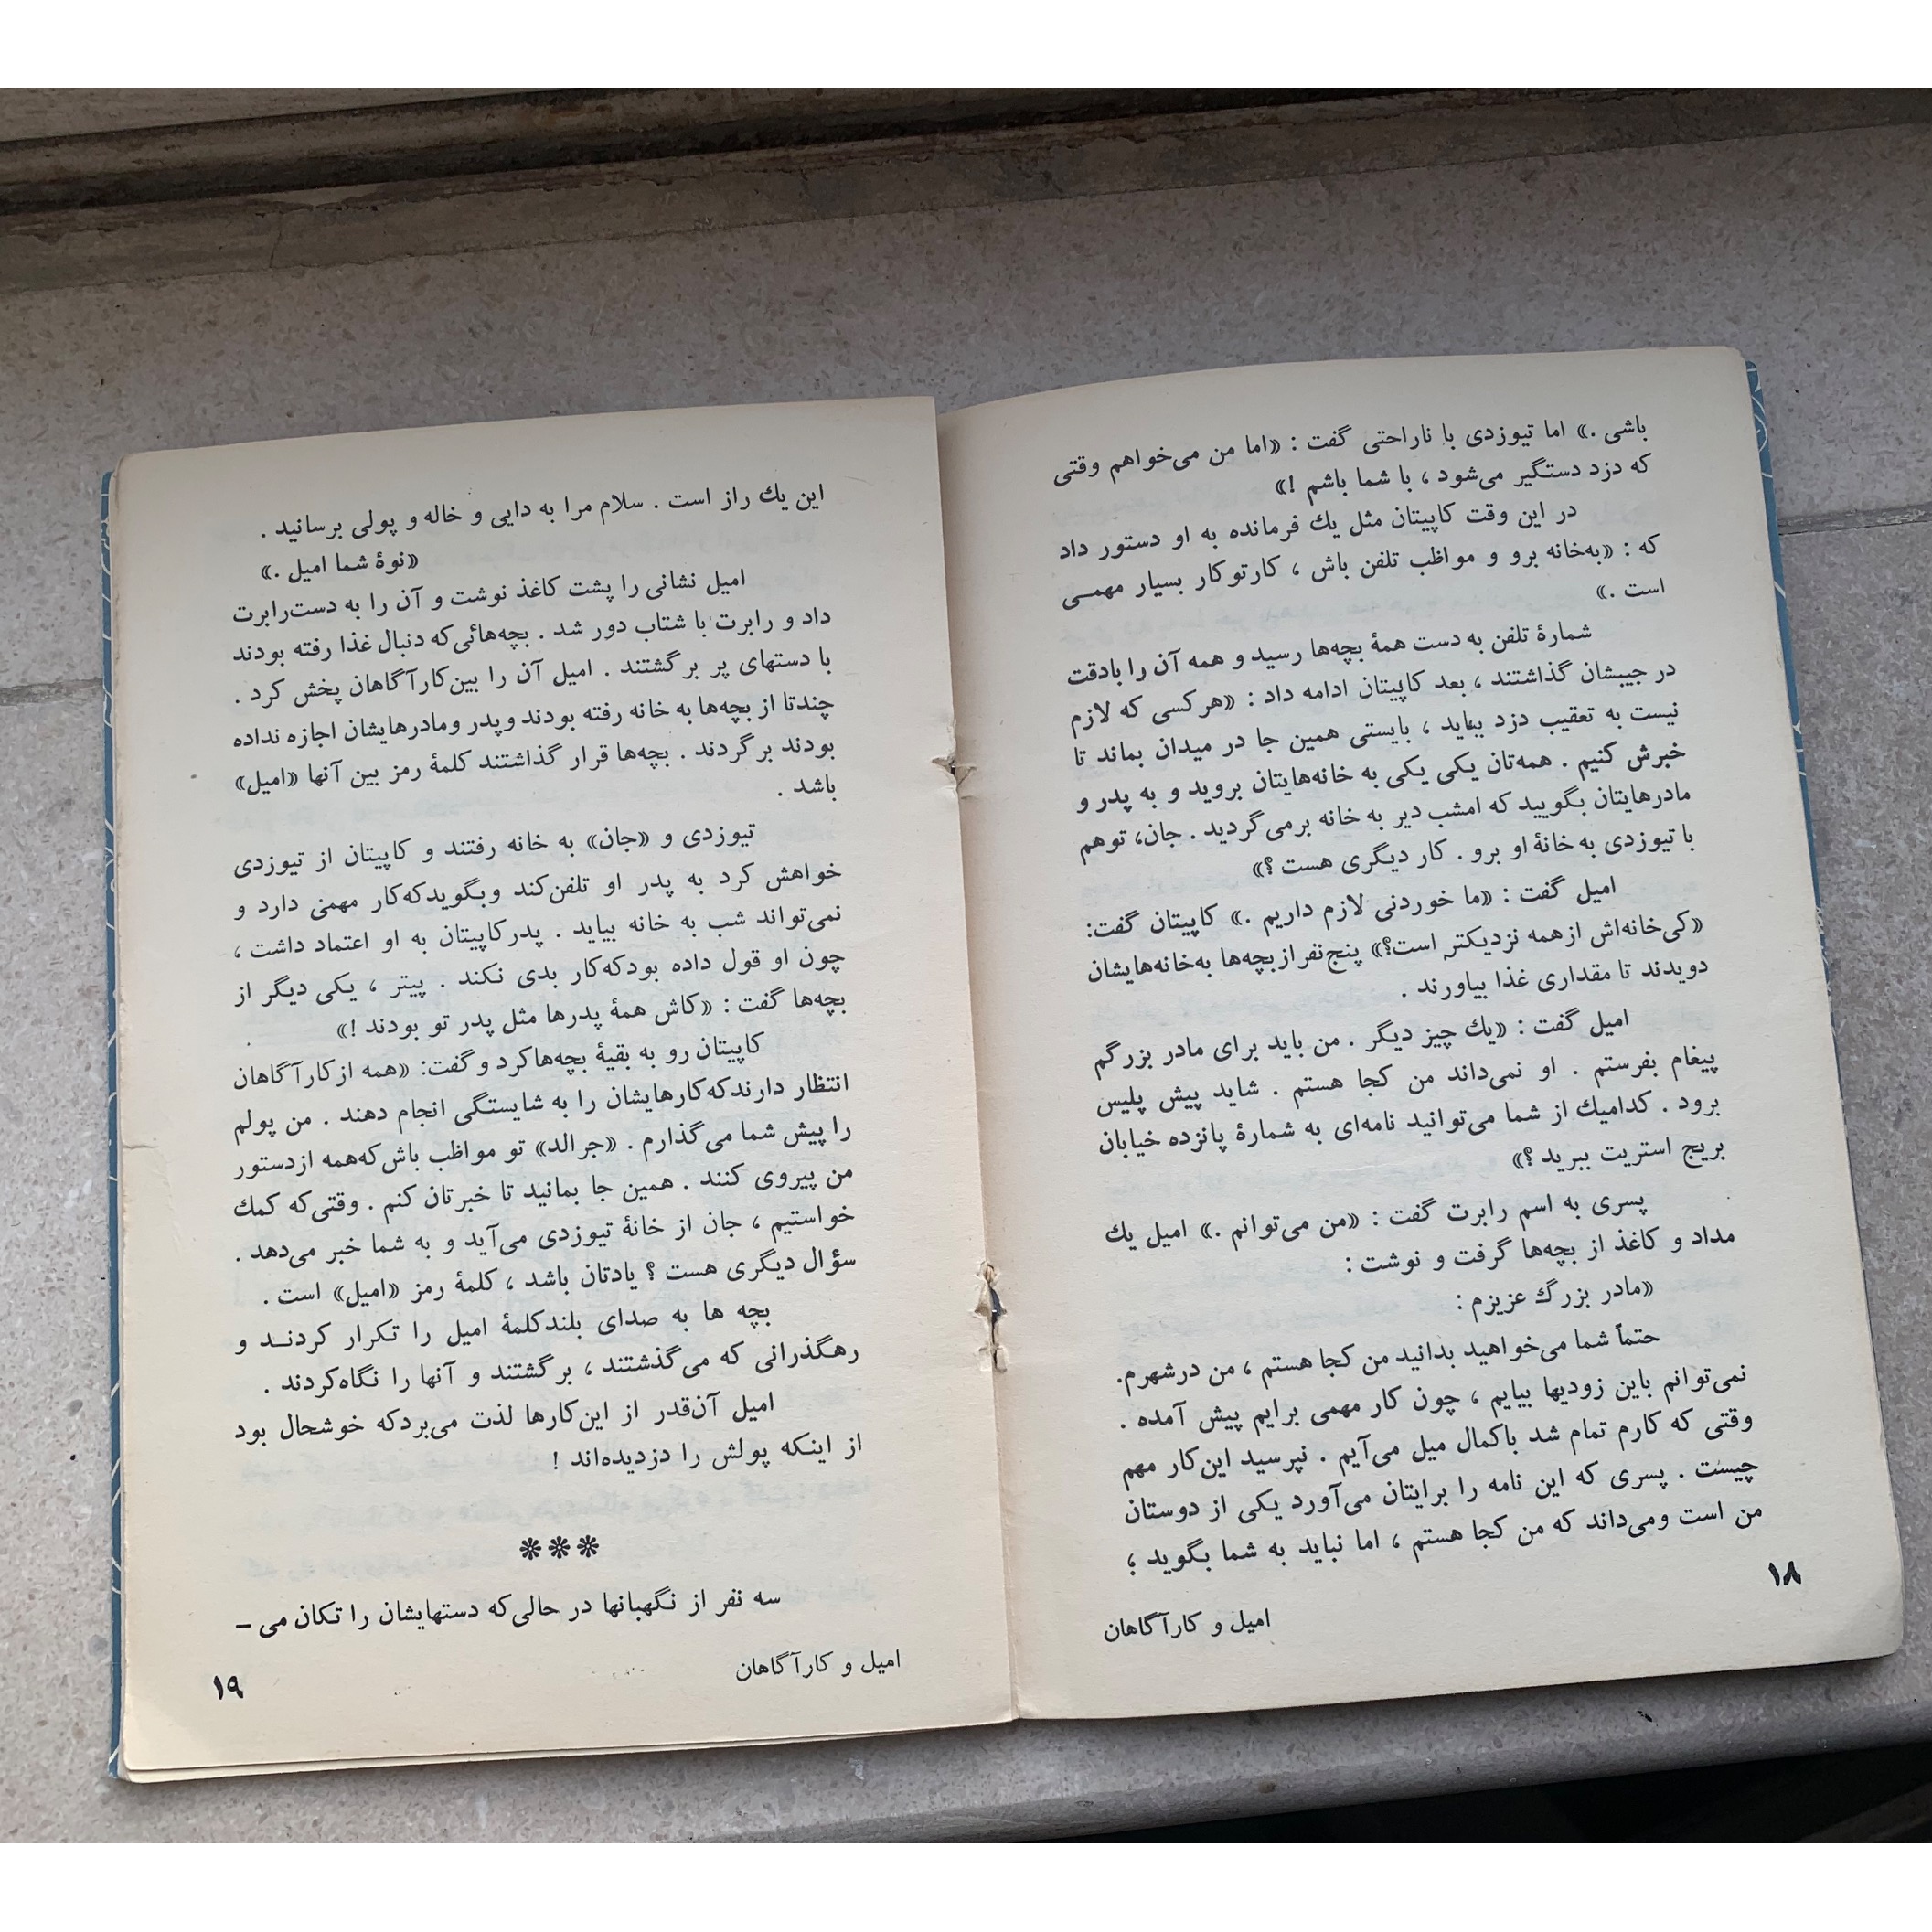 باشی .» اما تیوزدی با ناراحتی گفت : «اما من می‌خواهم وقتی
که دزد دستگیر می‌شود ، با شما باشم !»
در این وقت کاپیتان مثل یك فرمانده به او دستور داد
که : «به‌خانه برو و مواظب تلفن باش ، کارتوکار بسیار مهمـی
است .»
شمارهٔ تلفن به دست همهٔ بچه‌ها رسید و همه آن را بادقت
در جیبشان گذاشتند ، بعد کاپیتان ادامه داد : «هرکسی که لازم
نیست به تعقیب دزد بیاید ، بایستی همین جا در میدان بماند تا
خبرش کنیم . همه‌تان یکی یکی به خانه‌هایتان بروید و به پدر و
مادرهایتان بگویید که امشب دیر به خانه برمی‌گردید . جان، توهم
با تیوزدی به خانهٔ او برو . کار دیگری هست ؟»
امیل گفت : «ما خوردنی لازم داریم .» کاپیتان گفت:
«کی‌خانه‌اش ازهمه نزدیکتر است؟» پنج‌نفر ازبچه‌ها به‌خانه‌هایشان
دویدند تا مقداری غذا بیاورند .
امیل گفت : «یك چیز دیگر . من باید برای مادر بزرگم
پیغام بفرستم . او نمی‌داند من کجا هستم . شاید پیش پلیس
برود . کدامیك از شما می‌توانید نامه‌ای به شمارهٔ پانزده خیابان
بریج استریت ببرید ؟»
پسری به اسم رابرت گفت : «من می‌توانم .» امیل یك
مداد و کاغذ از بچه‌ها گرفت و نوشت :
«مادر بزرگ عزیزم :
حتماً شما می‌خواهید بدانید من کجا هستم ، من درشهرم.
نمی‌توانم باین زودیها بیایم ، چون کار مهمی برایم پیش آمده .
وقتی که کارم تمام شد باکمال میل می‌آیم . نپرسید این‌کار مهم
چیست . پسری که این نامه را برایتان می‌آورد یکی از دوستان
من است ومی‌داند که من کجا هستم ، اما نباید به شما بگوید ؛
۱۸
امیل و کارآگاهان
این یك راز است . سلام مرا به دایی و خاله و پولی برسانید .
«نوهٔ شما امیل .»
امیل نشانی را پشت کاغذ نوشت و آن را به دست‌رابرت
داد و رابرت با شتاب دور شد . بچه‌هائی‌که دنبال غذا رفته بودند
با دستهای پر برگشتند . امیل آن را بین‌کارآگاهان پخش کرد .
چندتا از بچه‌ها به خانه رفته بودند وپدر ومادرهایشان اجازه نداده
بودند برگردند . بچه‌ها قرار گذاشتند کلمهٔ رمز بین آنها «امیل»
باشد .
تیوزدی و «جان» به خانه رفتند و کاپیتان از تیوزدی
خواهش کرد به پدر او تلفن‌کند وبگویدکه‌کار مهمی دارد و
نمی‌تواند شب به خانه بیاید . پدرکاپیتان به او اعتماد داشت ،
چون او قول داده بودکه‌کار بدی نکند . پیتر ، یکی دیگر از
بچه‌ها گفت : «کاش همهٔ پدرها مثل پدر تو بودند !»
کاپیتان رو به بقیهٔ بچه‌هاکرد وگفت: «همه ازکارآگاهان
انتظار دارندکه‌کارهایشان را به شایستگی انجام دهند . من پولم
را پیش شما می‌گذارم . «جرالد» تو مواظب باش‌که‌همه ازدستور
من پیروی کنند . همین جا بمانید تا خبرتان کنم . وقتی‌که کمك
خواستیم ، جان از خانهٔ تیوزدی می‌آید و به شما خبر می‌دهد .
سؤال دیگری هست ؟ یادتان باشد ، کلمهٔ رمز «امیل» است .
بچه ها به صدای بلندکلمهٔ امیل را تکرار کردنـد و
رهگذرانی که می‌گذشتند ، برگشتند و آنها را نگاه‌کردند .
امیل آن‌قدر از این‌کارها لذت می‌بردکه خوشحال بود
از اینکه پولش را دزدیده‌اند !
***
سه نفر از نگهبانها در حالی‌که دستهایشان را تکان می –
امیل و کارآگاهان
۱۹